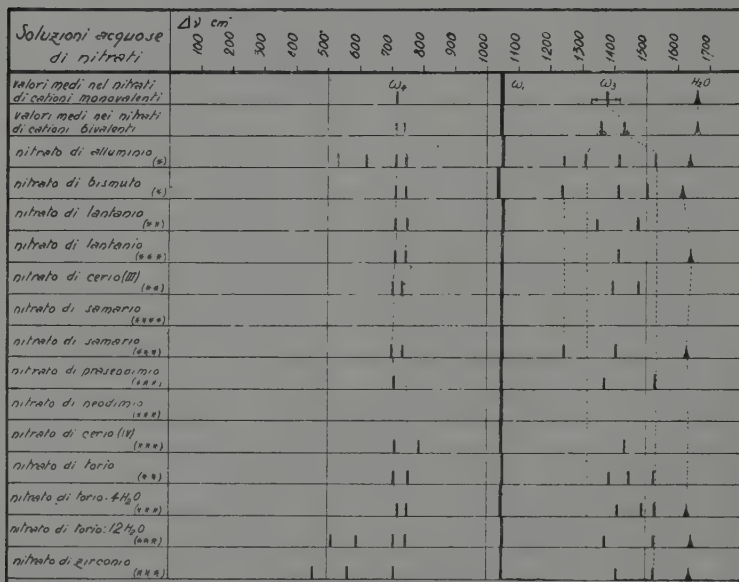 Soluzioni acquose
di nitrati
Δν cm⁻
100 200 300 400 500 600 700 800 1000 1040 1200 1300 1400 1500 1600 1700
valori medi nei nitrati
di cationi monovalenti
ω₄ ω, ω₃ H₂O
valori medi nei nitrati
di cationi bivalenti
nitrato di alluminio
(*)
nitrato di bismuto
(*)
nitrato di lantanio
(**)
nitrato di lantanio
(***)
nitrato di cerio (III)
(**)
nitrato di samario
(****)
nitrato di samario
(***)
nitrato di praseodimio
(***)
nitrato di neodimio
(***)
nitrato di cerio (IV)
(***)
nitrato di torio
(**)
nitrato di torio·4H₂O
(***)
nitrato di torio:12H₂O
(***)
nitrato di zirconio
(***)